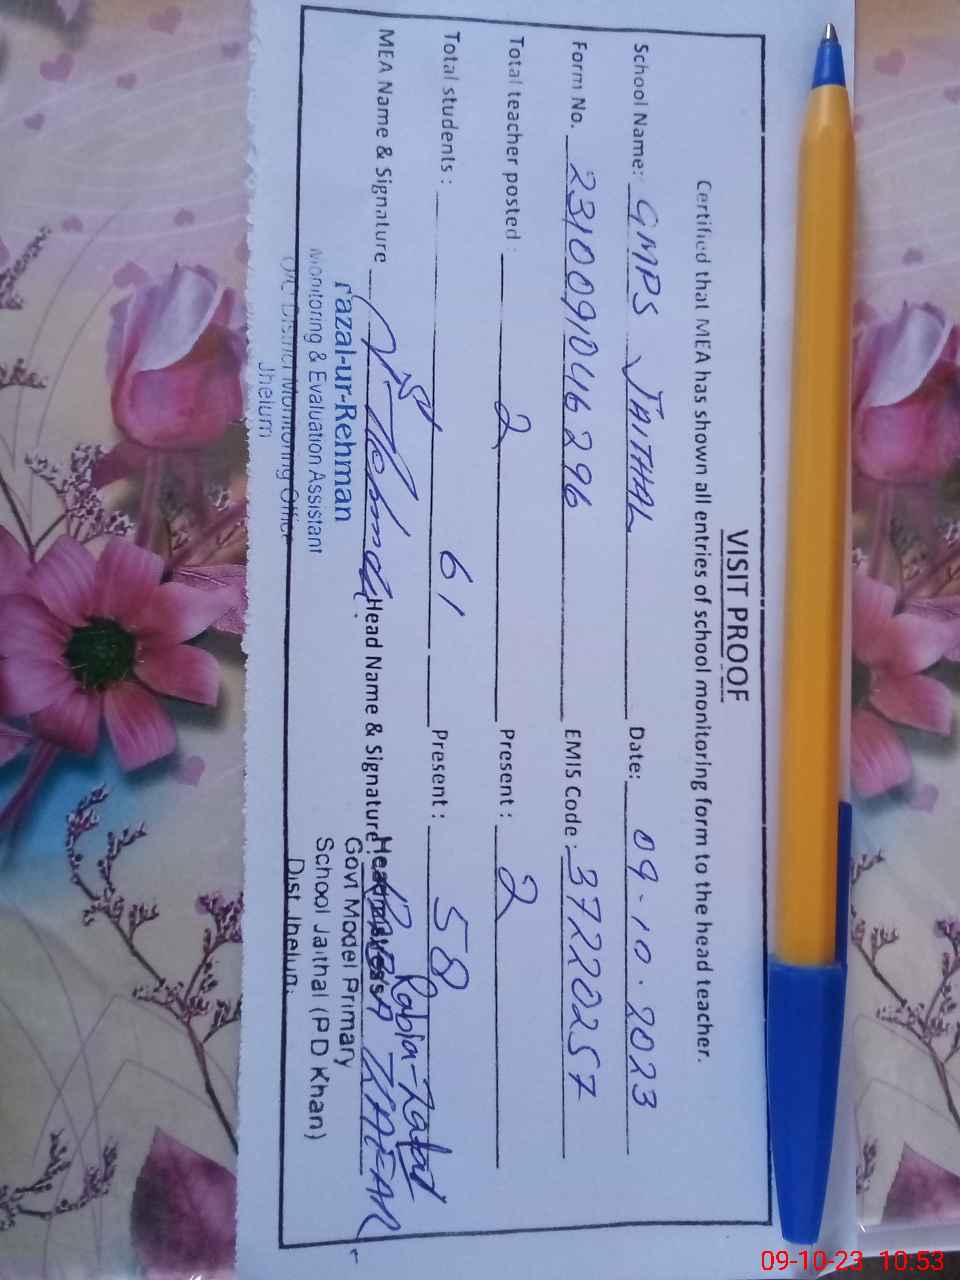 VISIT PROOF
Certified that MEA has shown all entries of school monitoring form to the head teacher.
School Name: GMPS JAITHAL Date: 09-10.2023
Form No. 231009104 6296 EMIS Code: 37220257
Total teacher posted: 2 Present: 2
Total students: 61 Present: 58
MEA Name & Signature Head Name & Signature Rabia
Headmistress
Fazal-ur-Rehman
Monitoring & Evaluation Assistant
O/o District Monitoring Office
Jhelum
Govt Model Primary
School Jaithal (P D Khan)
Dist Jhelum.
09-10-23 10:53